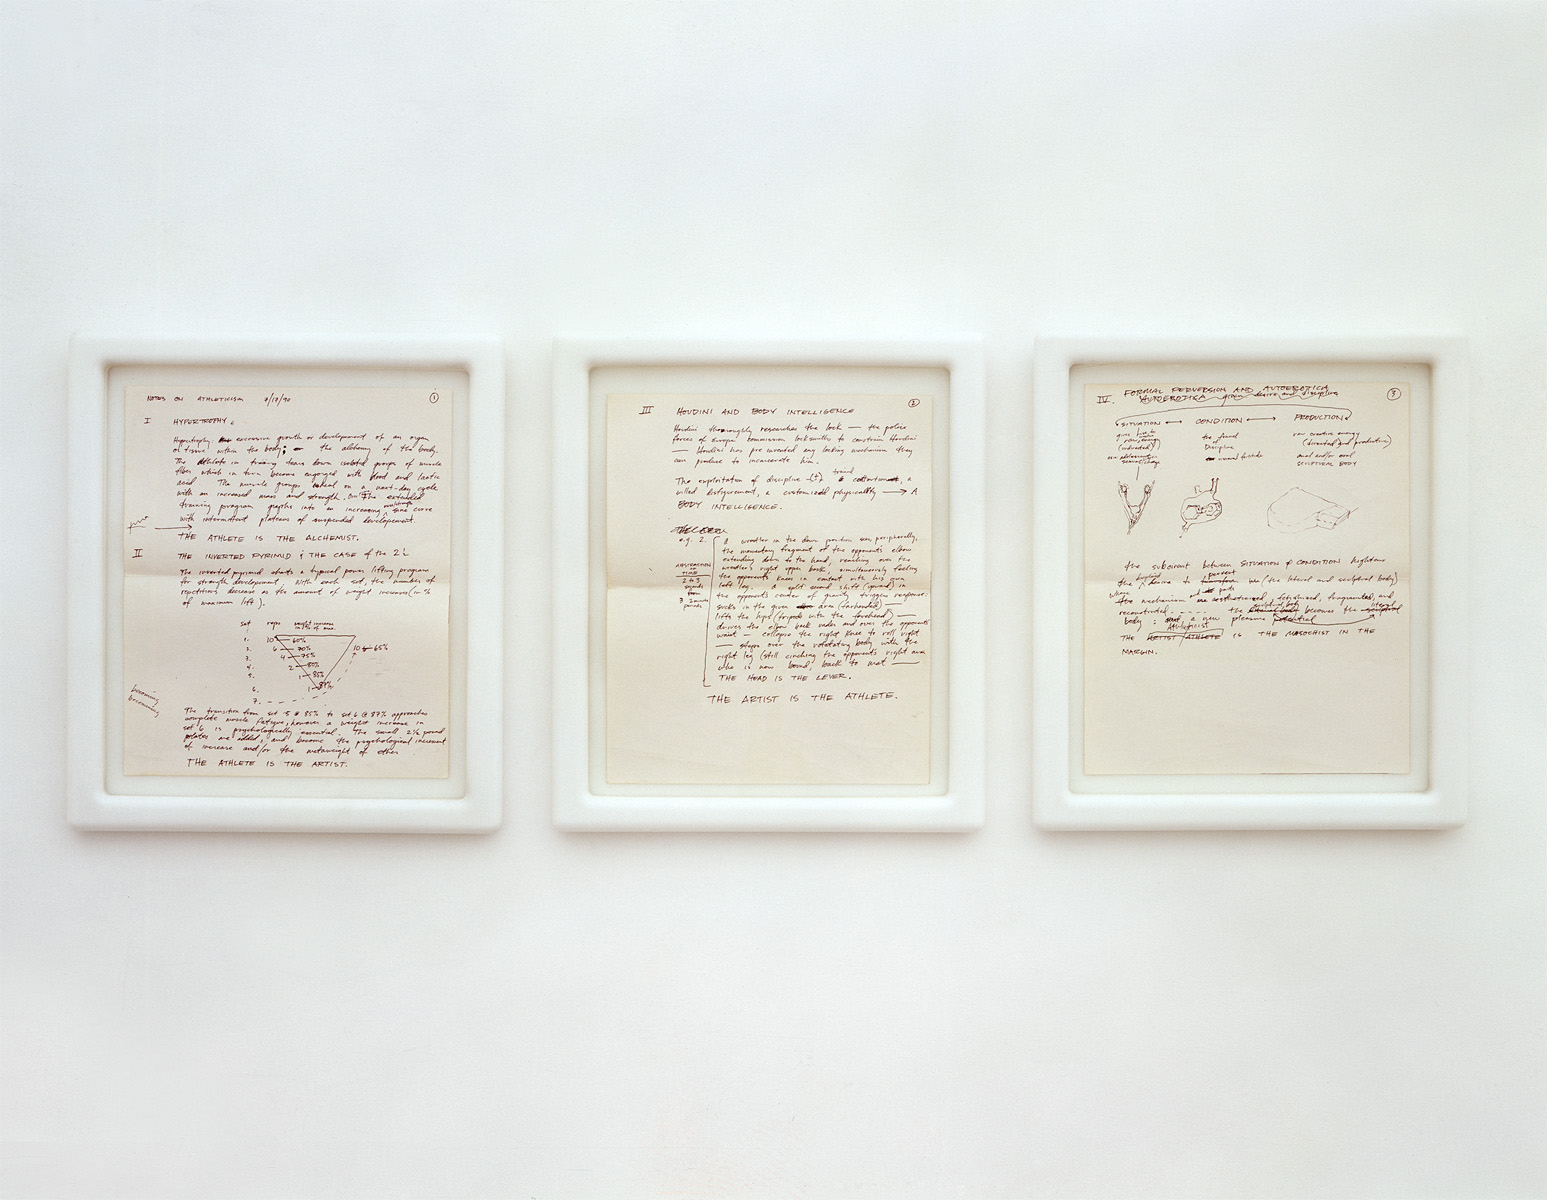 NOTES ON ATHLETICISM
1
I HYPERTROPHY
Hypertrophy excessive growth or development of an organ
or tissue within the body; the alchemy of the body.
The Athlete in training tears down isolated groups of muscle
fiber which in turn become engorged with blood and lactic
acid. The muscle groups reheal on a next-day cycle
with an increased mass and strength. The extended
training program graphs into an increasing sine curve
with intermittent plateaus of suspended development.
THE ATHLETE IS THE ALCHEMIST.
II THE INVERTED PYRAMID & THE CASE of the 2½
The inverted pyramid charts a typical power lifting program
for strength development. With each set, the number of
repetitions decrease as the amount of weight increases (in %
of maximum lift).
set reps weight increase
in % of max.
1. 10 60%
2. 6 70% 10 65%
3. 4 75%
4. 2 80%
5. 1 85%
6. 1 87%
7.
becoming
becoming
The transition from set 5 @ 85% to set 6 @ 87% approaches
complete muscle fatigue, however a weight increase in
set 6 is psychologically essential. The small 2½ pound
plates are added, and become the psychological increment
of increase and/or the metaweight of ether
THE ATHLETE IS THE ARTIST.
2
III HOUDINI AND BODY INTELLIGENCE
Houdini thoroughly researches the lock — the police
forces of Europe commission locksmiths to constrain Houdini
— Houdini has pre invented any locking mechanism they
can produce to incarcerate him.
trained
The exploitation of discipline a
skilled disfigurement, a customized physicality → A
BODY INTELLIGENCE.
e.g. 2. A wrestler in the down position sees, peripherally,
the momentary fragment of the opponents elbow
extending down to the hand, reaching over the
wrestler's right upper back, simultaneously feeling
the opponents knee in contact with his own
left leg. A split second shift (upward) in
the opponent's center of gravity triggers response:
sucks in the given arm (farhended) —
lifts the hips (tripods with the forehead) —
drives the elbow back under and over the opponents
waist — collapse the right knee to roll right
— steps over the rotating body with the
right leg (still cinching the opponent's right arm
who is now bound, back to mat —
THE HEAD IS THE LEVER.
ABSTRACTION
TIME
2 to 3
seconds
from
3 2 minute
periods
THE ARTIST IS THE ATHLETE.
3
IV. FORMAL PERVERSION AND AUTOEROTICA
AUTOEROTICA given desire and discipline
SITUATION ↔ CONDITION ↔ PRODUCTION
the funnel
of
Discipline
raw creative energy
(diverted) and productive
anal and/or oral
SCULPTURAL BODY
the subcircuit between SITUATION & CONDITION heightens
the desire to pervert use (the literal and sculptural body)
where mechanism and parts aestheticized, fetishized, fragmented, and
reconstructed. the becomes the literal
body: a new pleasure potential
Athleticist
THE ARTIST/ATHLETE IS THE MASOCHIST IN THE
MARGIN.